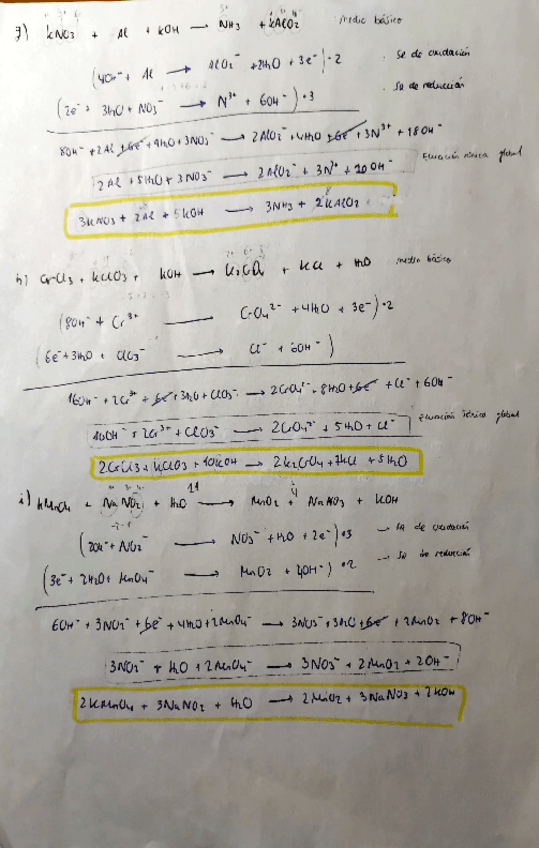 g) KNO₃ + Al + KOH → NH₃ + KAlO₂ medio básico
(4OH⁻ + Al → AlO₂⁻ + 2H₂O + 3e⁻)·2 SR de oxidación
(2e⁻ + 3H₂O + NO₃⁻ → N³⁺ + 6OH⁻)·3 SR de reducción
8OH⁻ + 2Al + 6e⁻ + 9H₂O + 3NO₃⁻ → 2AlO₂⁻ + 4H₂O + 6e⁻ + 3N³⁺ + 18OH⁻
2Al + 5H₂O + 3NO₃⁻ → 2AlO₂⁻ + 3N³⁺ + 10OH⁻ Ecuación iónica global
3KNO₃ + 2Al + 5KOH → 3NH₃ + 2KAlO₂
h) CrCl₃ + KClO₃ + KOH → K₂CrO₄ + KCl + H₂O medio básico
(8OH⁻ + Cr³⁺ → CrO₄²⁻ + 4H₂O + 3e⁻)·2
(6e⁻ + 3H₂O + ClO₃⁻ → Cl⁻ + 6OH⁻)
16OH⁻ + 2Cr³⁺ + 6e⁻ + 3H₂O + ClO₃⁻ → 2CrO₄²⁻ + 8H₂O + 6e⁻ + Cl⁻ + 6OH⁻
10OH⁻ + 2Cr³⁺ + ClO₃⁻ → 2CrO₄²⁻ + 5H₂O + Cl⁻ Ecuación iónica global
2CrCl₃ + KClO₃ + 10KOH → 2K₂CrO₄ + 7KCl + 5H₂O
i) KMnO₄ + NaNO₂ + H₂O → MnO₂ + NaNO₃ + KOH
(2OH⁻ + NO₂⁻ → NO₃⁻ + H₂O + 2e⁻)·3 → SR de oxidación
(3e⁻ + 2H₂O + MnO₄⁻ → MnO₂ + 4OH⁻)·2 → SR de reducción
6OH⁻ + 3NO₂⁻ + 6e⁻ + 4H₂O + 2MnO₄⁻ → 3NO₃⁻ + 3H₂O + 6e⁻ + 2MnO₂ + 8OH⁻
3NO₂⁻ + H₂O + 2MnO₄⁻ → 3NO₃⁻ + 2MnO₂ + 2OH⁻
2KMnO₄ + 3NaNO₂ + H₂O → 2MnO₂ + 3NaNO₃ + 2KOH